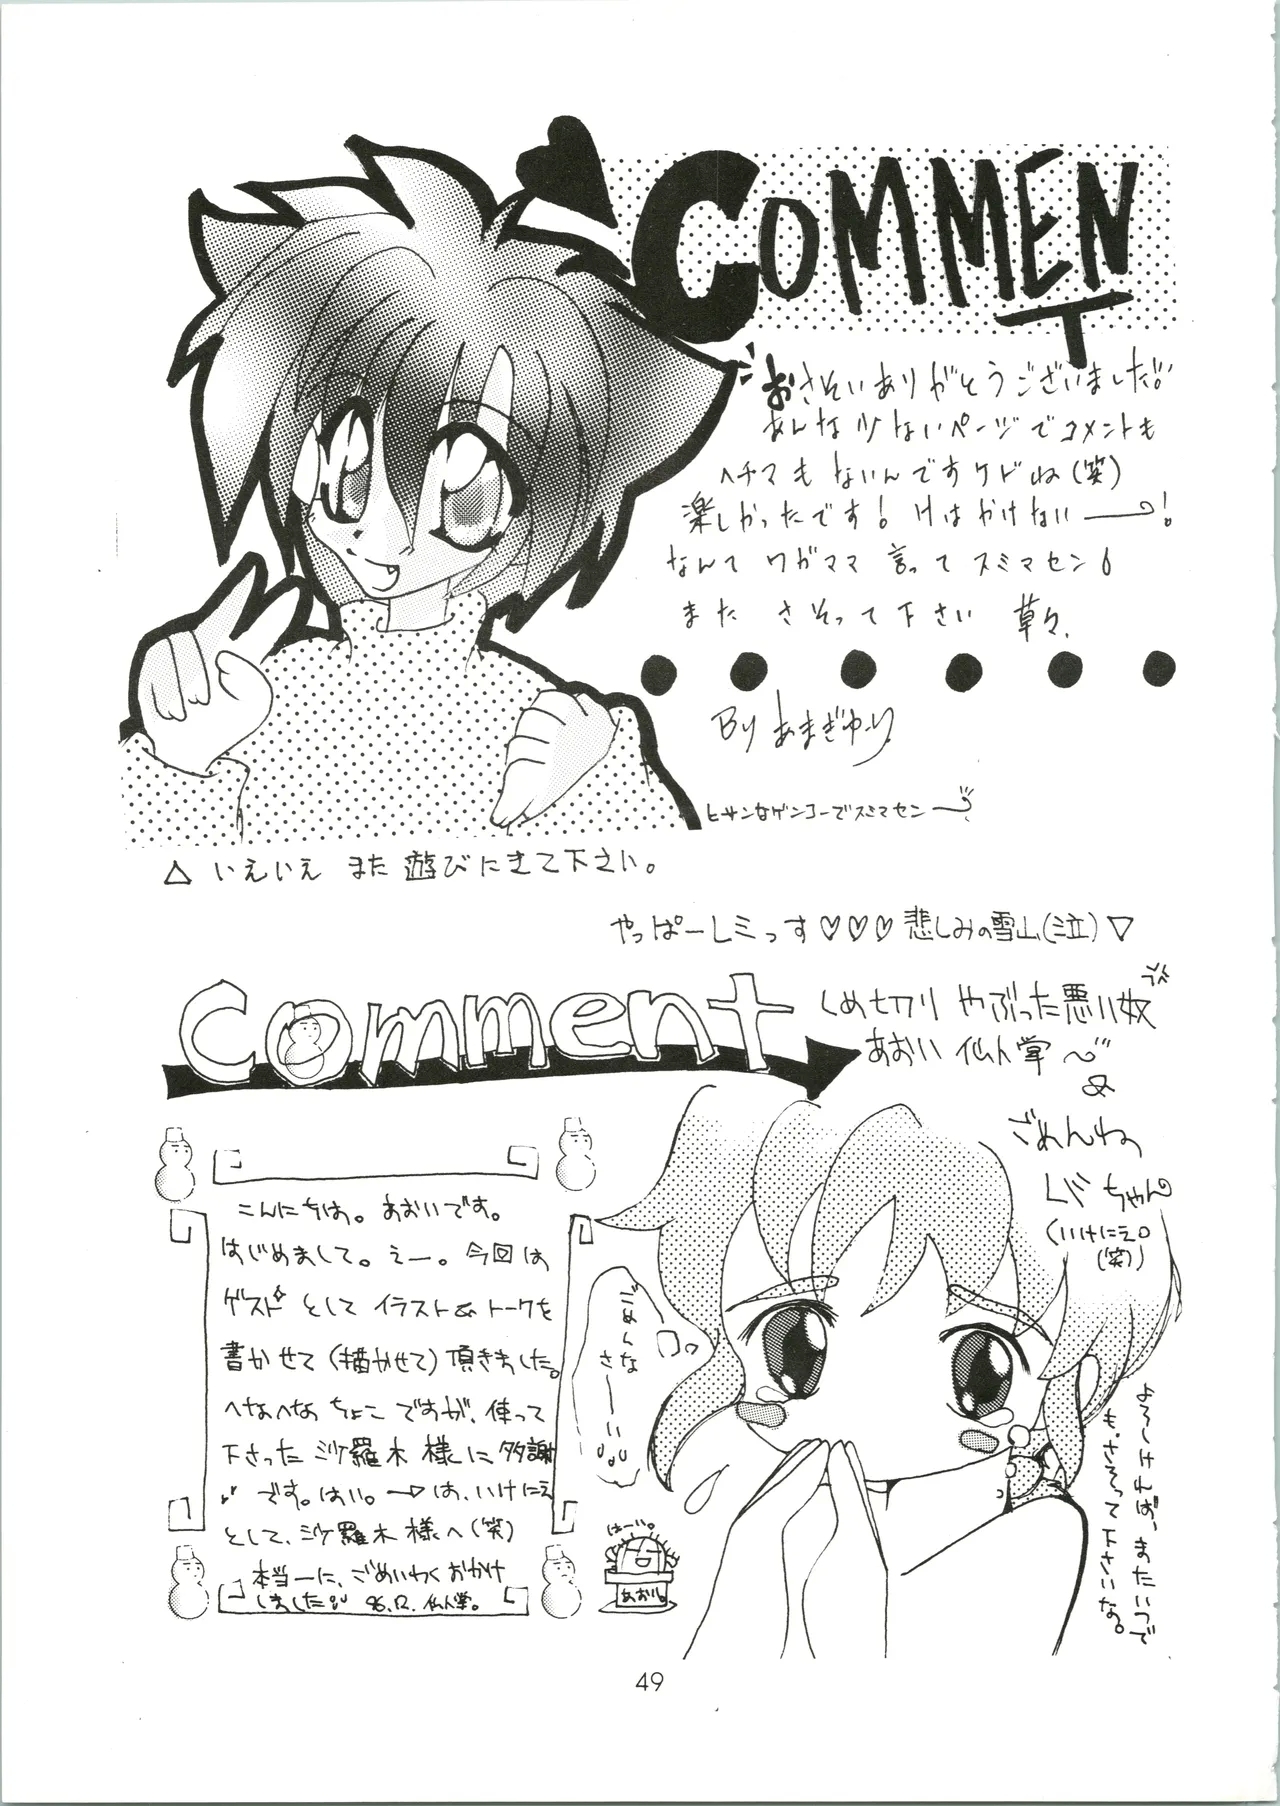 COMMENT
おさそいありがとうございました。
あんな少ないページでコメントも
ヘチマもないんですケドね(笑)
楽しかったです!Hはかけない――!
なんてワガママ言ってスミマセン
またさそって下さい 草々.
By あまぎゆーり
ヒサンなゲンコーでスミマセン
△ いえいえ また遊びにきて下さい。
やっぱーしミっす♡♡♡悲しみの雪山(泣)▽
comment
〆切り やぶった悪い奴
あおい 仙人掌
ごめんね
ちゃん
(いけにえ。
(笑))
こんにちは。あおいです。
はじめまして。えー。今回は
ゲストとして イラスト&トークを
書かせて(描かせて)頂きました。
へなへな ちょこですが、使って
下さった 沙羅木様に多謝
です。はい。は、いけにえ
として、沙羅木様へ(笑)
本当ーに、ごめいわくおかけ
しました 96.12. 仙人掌。
ごめんな
さーい
はーい。
あおい。
よろしければ、またいつで
も、さそって下さいな。
49